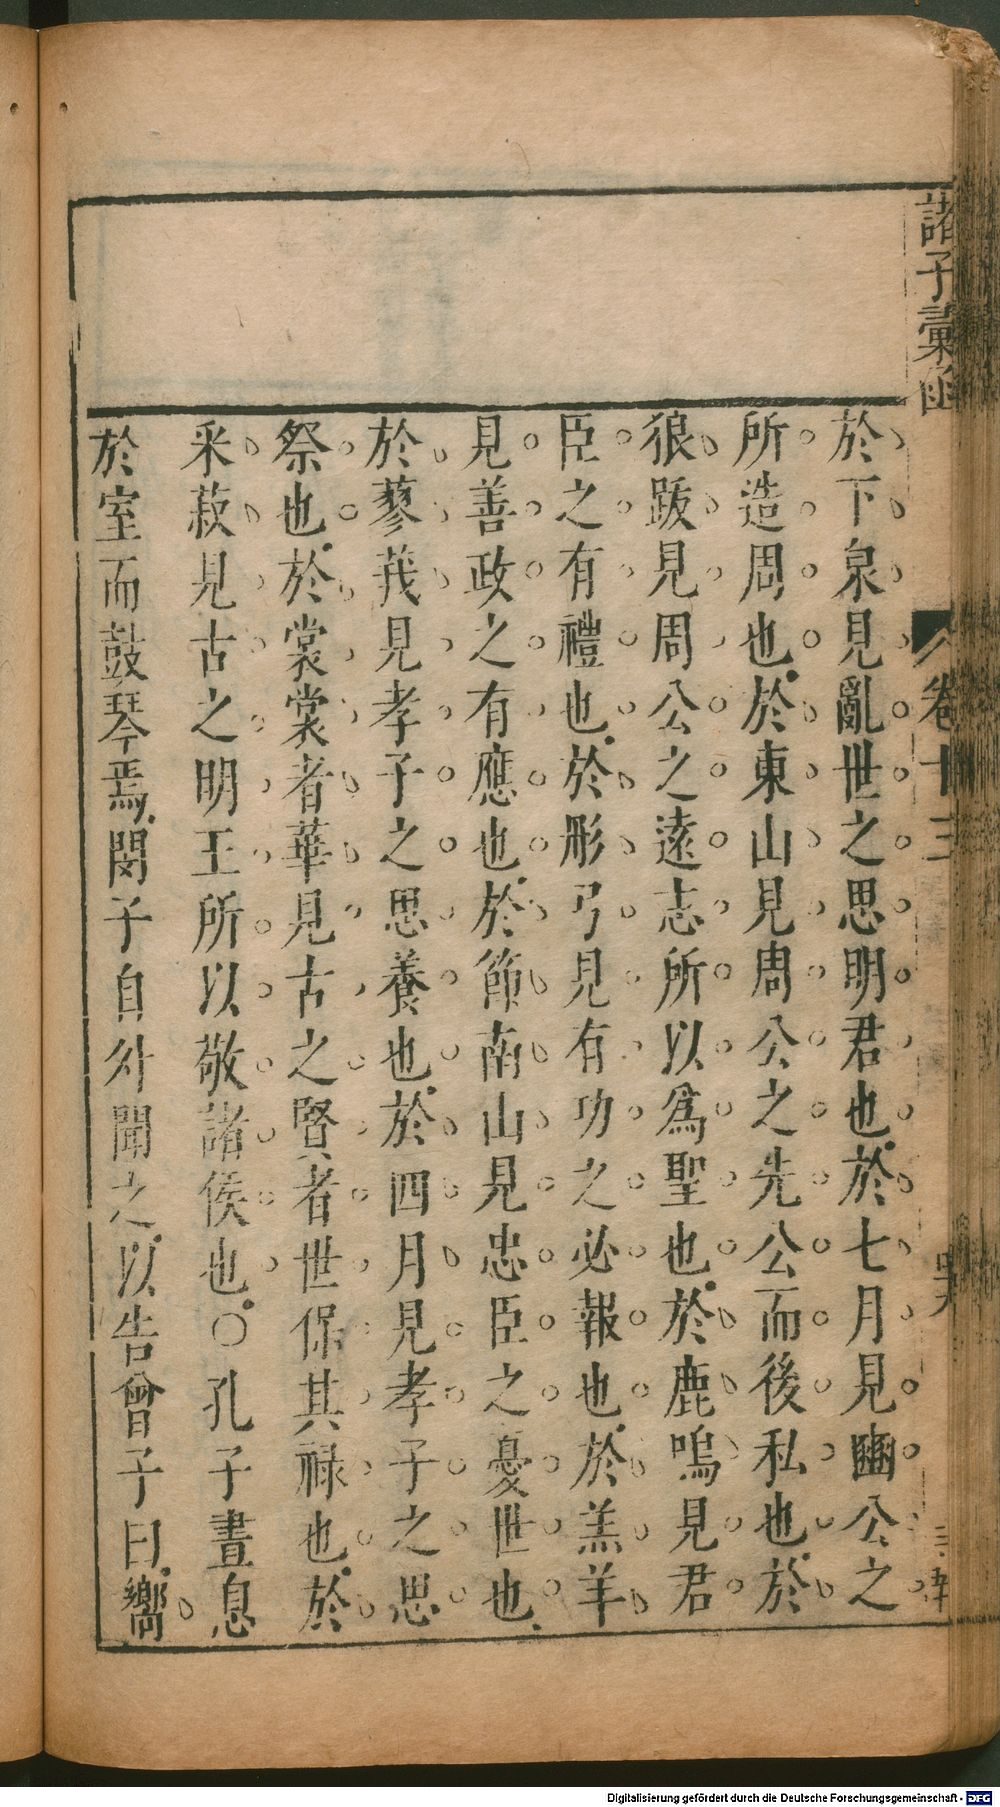 諸子彙函
卷十三
於下泉見亂世之思明君也於七月見豳公之
所造周也於東山見周公之先公而後私也於
狼跋見周公之遠志所以爲聖也於鹿鳴見君
臣之有禮也於彤弓見有功之必報也於羔羊
見善政之有應也於節南山見忠臣之憂世也
於蓼莪見孝子之思養也於四月見孝子之思
祭也於裳裳者華見古之賢者世保其祿也於
采菽見古之明王所以敬諸侯也○孔子晝息
於室而鼓琴焉閔子自外聞之以告曾子曰嚮
Digitalisierung gefördert durch die Deutsche Forschungsgemeinschaft - DFG